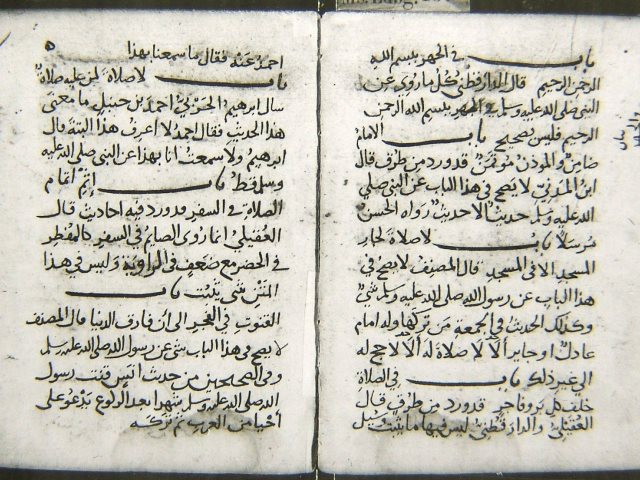 باب في الجهر ببسم الله
الرحمن الرحيم قال الدارقطني كل ما روي عن
النبي صلى الله عليه وسلم في الجهر ببسم الله الرحمن
الرحيم فليس بصحيح باب الامام
ضامن والموذن موتمن قد ورد من طرق قال
ابن المديني لا يصح في هذا الباب عن النبي صلى
الله عليه وسلم حديث الا حديث رواه الحسن
مرسلا باب لا صلاة لجار
المسجد الا في المسجد قال المصنف لا يصح في
هذا الباب عن رسول الله صلى الله عليه وسلم شي
وكذلك الحديث في الجمعة من تركها وله امام
عادل او جابر الا لا صلاة له الا لا حج له
الى غير ذلك باب في الصلاة
خلف كل بر وفاجر قد ورد من طرق قال
العقيلي والدارقطني ليس فيها ما يثبت سيل
احمد عنه فقال ما سمعنا بهذا
باب لا صلاة لمن عليه صلاة
سال ابرهيم الحربي احمد بن حنبل ما معنى
هذا الحديث فقال احمد لا اعرف هذا البتة قال
ابرهيم ولا سمعت انا بهذا عن النبي صلى الله عليه
وسلم قط باب اثم اتمام
الصلاة في السفر قد ورد فيه احاديث قال
العقيلي انما روي الصايم في السفر كالمفطر
في الحضر مع ضعف في الراوية وليس في هذا
المتن شي يثبت باب
القنوت في الفجر الى أن فارق الدنيا قال المصنف
لا يصح في هذا الباب شي عن رسول الله صلى الله عليه وسلم
وفي الصحيحين من حديث انس قنت رسول
الله صلى الله عليه وسلم شهرا بعد الركوع يدعو على
أحيا من العرب ثم تركه